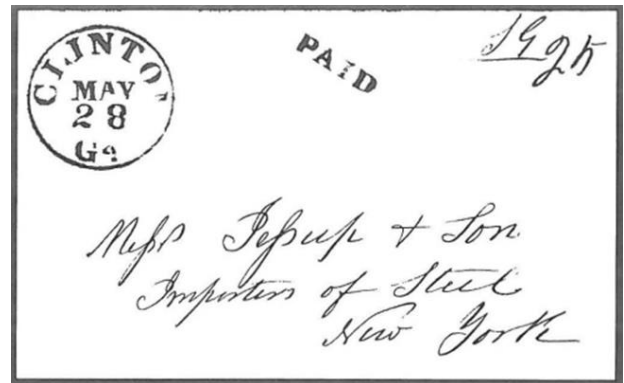 CLINTON
MAY
28
Ga
PAID
25
Messrs Jessup & Son
Importers of Steel
New York